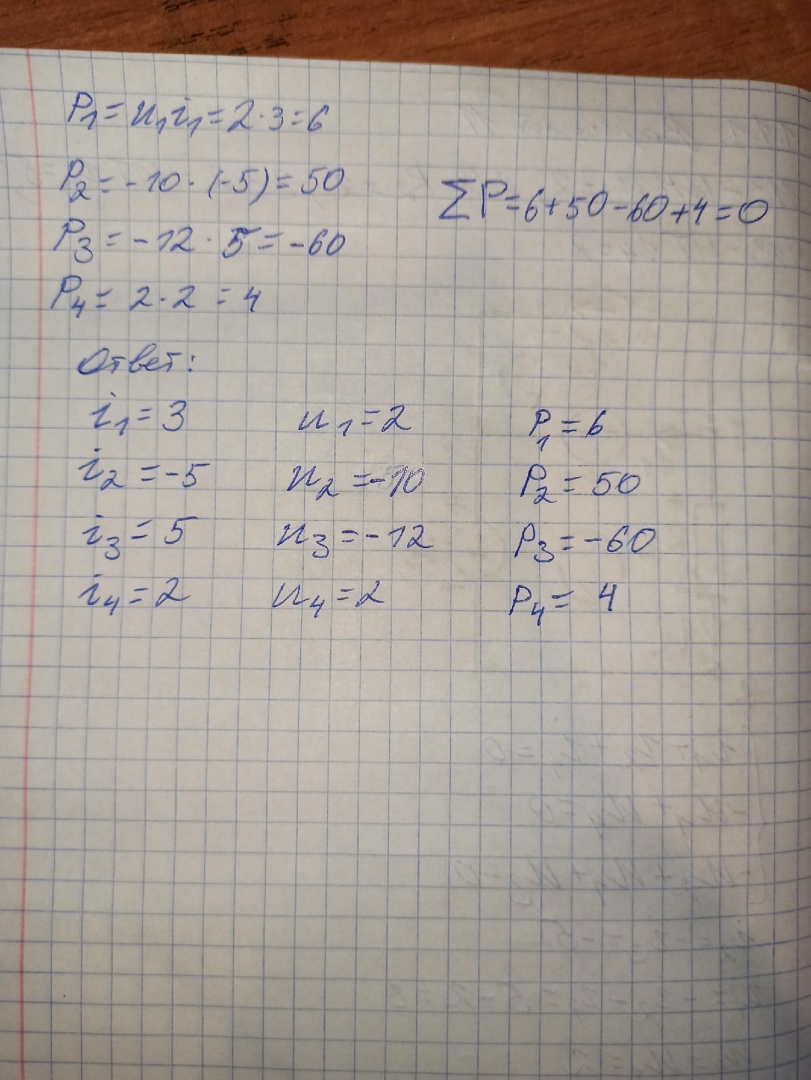 P₁ = u₁i₁ = 2·3 = 6
P₂ = -10·(-5) = 50
∑P = 6+50-60+4 = 0
P₃ = -12·5 = -60
P₄ = 2·2 = 4
Ответ:
i₁ = 3 u₁ = 2 P₁ = 6
i₂ = -5 u₂ = -10 P₂ = 50
i₃ = 5 u₃ = -12 P₃ = -60
i₄ = 2 u₄ = 2 P₄ = 4